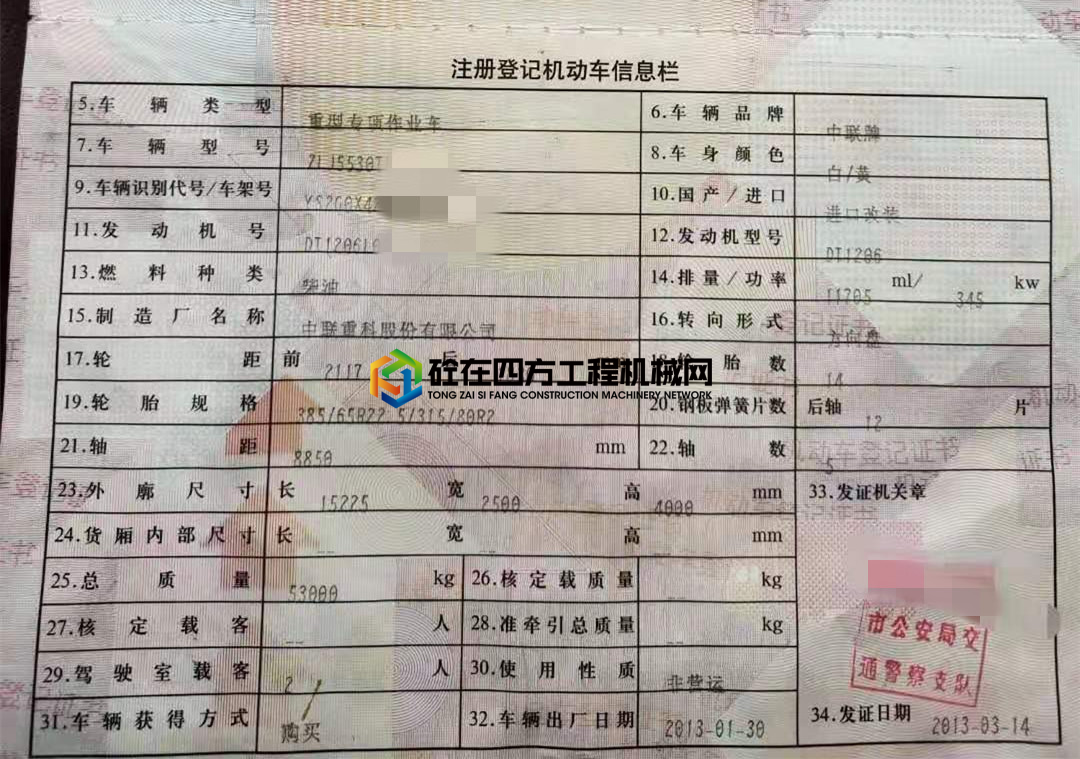 注册登记机动车信息栏
5.车辆类型 重型专项作业车 6.车辆品牌 中联牌
7.车辆型号 ZLJ5530T 8.车身颜色 白/黄
9.车辆识别代号/车架号 YS2G8X4 10.国产/进口 进口改装
11.发动机号 DT1206L 12.发动机型号 DT1206
13.燃料种类 柴油 14.排量/功率 11705 ml/ 345 kw
15.制造厂名称 中联重科股份有限公司 16.转向形式 方向盘
17.轮距 前 2117 后 18.轮胎数 14
砼在四方工程机械网
TONG ZAI SI FANG CONSTRUCTION MACHINERY NETWORK
19.轮胎规格 385/65R22.5/315/80R2 20.钢板弹簧片数 后轴 12 片
21.轴距 8850 mm 22.轴数 5
23.外廓尺寸 长 15225 宽 2500 高 4000 mm 33.发证机关章
24.货厢内部尺寸 长 -- 宽 -- 高 -- mm
25.总质量 53000 kg 26.核定载质量 -- kg
27.核定载客 -- 人 28.准牵引总质量 -- kg
市公安局交
通警察支队
29.驾驶室载客 2 人 30.使用性质 非营运
31.车辆获得方式 购买 32.车辆出厂日期 2013-01-30 34.发证日期 2013-03-14